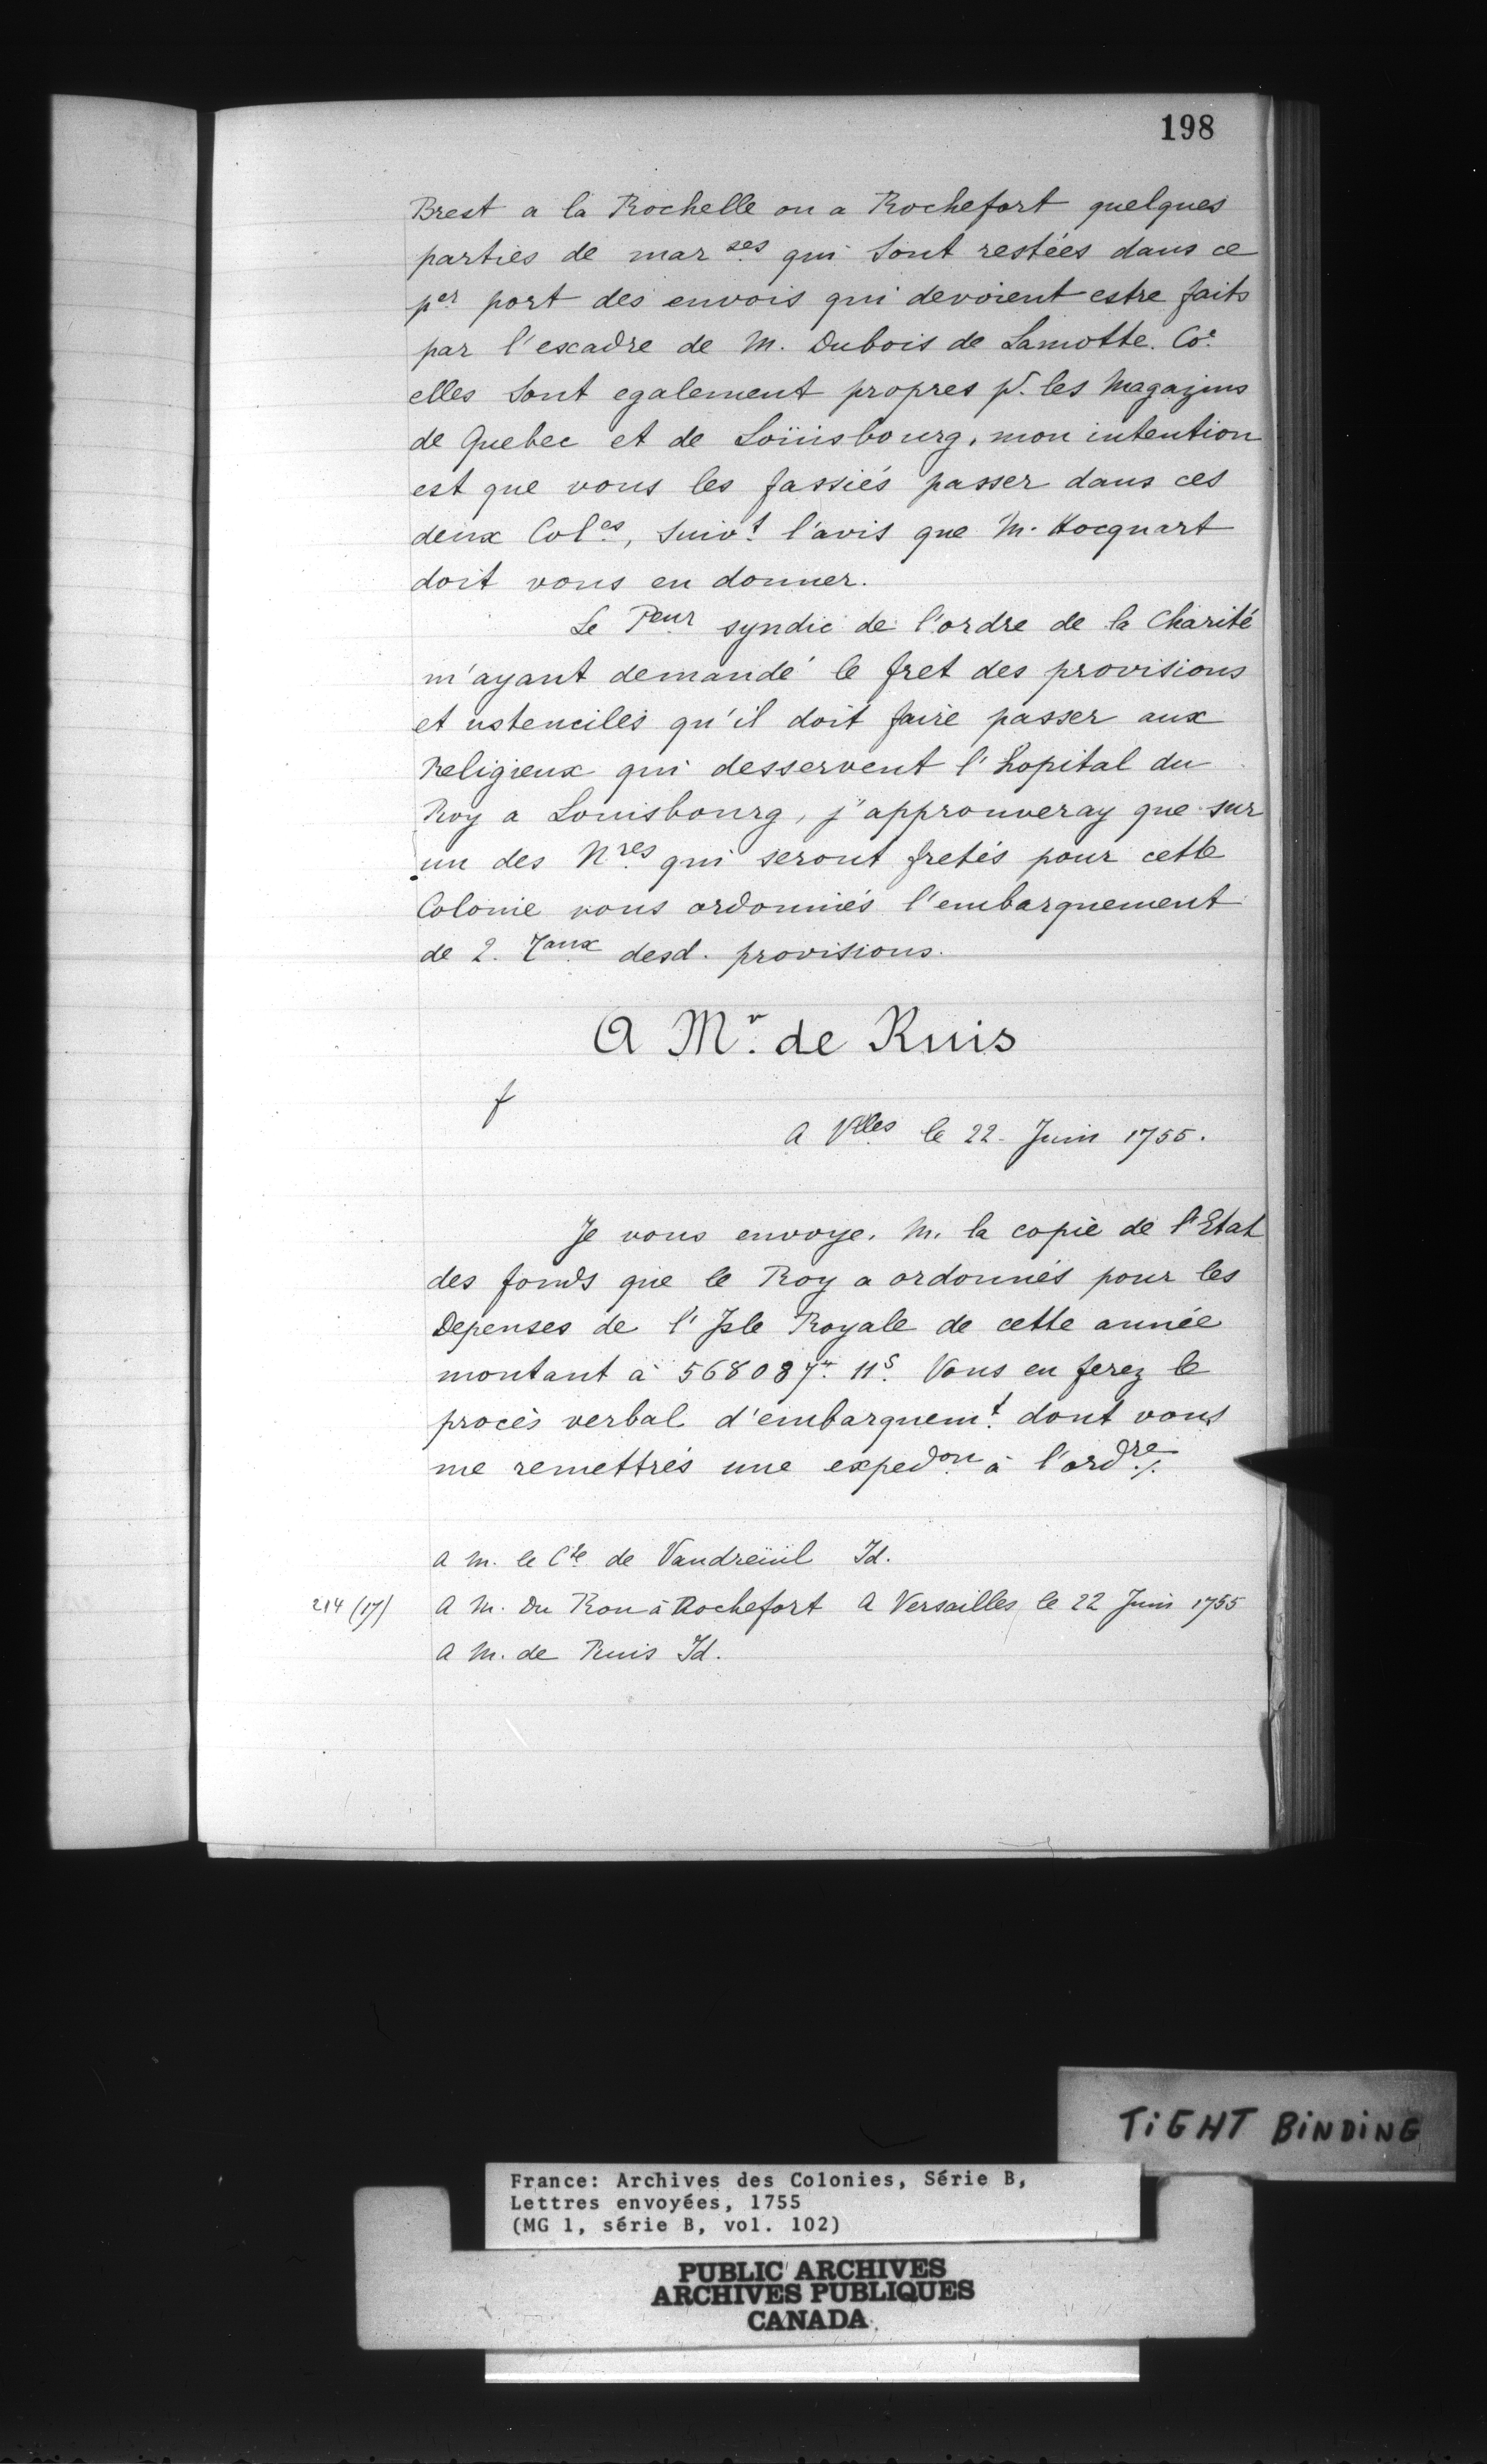 198
Brest a la Rochelle ou a Rochefort quelques
parties de mar ses qui sont restées dans ce
per port des envois qui devoient estre faits
par l'escadre de M. Dubois de Lamotte. Coe
elles sont egalement propres pr. les Magazins
de Quebec et de Loüisbourg, mon intention
est que vous les fassiés passer dans ces
deux Coles, suivt l'avis que M. Hocquart
doit vous en donner.
Le Peur syndic de l'ordre de la Charité
m'ayant demandé le fret des provisions
et ustenciles qu'il doit faire passer aux
Religieux qui desservent l'hopital du
Roy a Louisbourg, j'approuveray que sur
un des Nres qui seront fretés pour cette
Colonie vous ordonniés l'embarquement
de 2. Taux desd. provisions.
A Mr. de Ruis
f
A Vlles le 22. Juin 1755.
Je vous envoye. M. la copie de l'Etat
des fonds que le Roy a ordonnés pour les
Depenses de l'Isle Royale de cette année
montant à 568087tt 11s. Vous en ferez le
procès verbal d'embarquemt. dont vous
me remettrés une expedon à l'ordre./.
A M. le Cte de Vaudreüil Id.
214 (17) A M. Du Rou à Rochefort A Versailles le 22 Juin 1755
A M. de Ruis Id.
TiGHT BiNDiNG
France: Archives des Colonies, Série B,
Lettres envoyées, 1755
(MG 1, série B, vol. 102)
PUBLIC ARCHIVES
ARCHIVES PUBLIQUES
CANADA